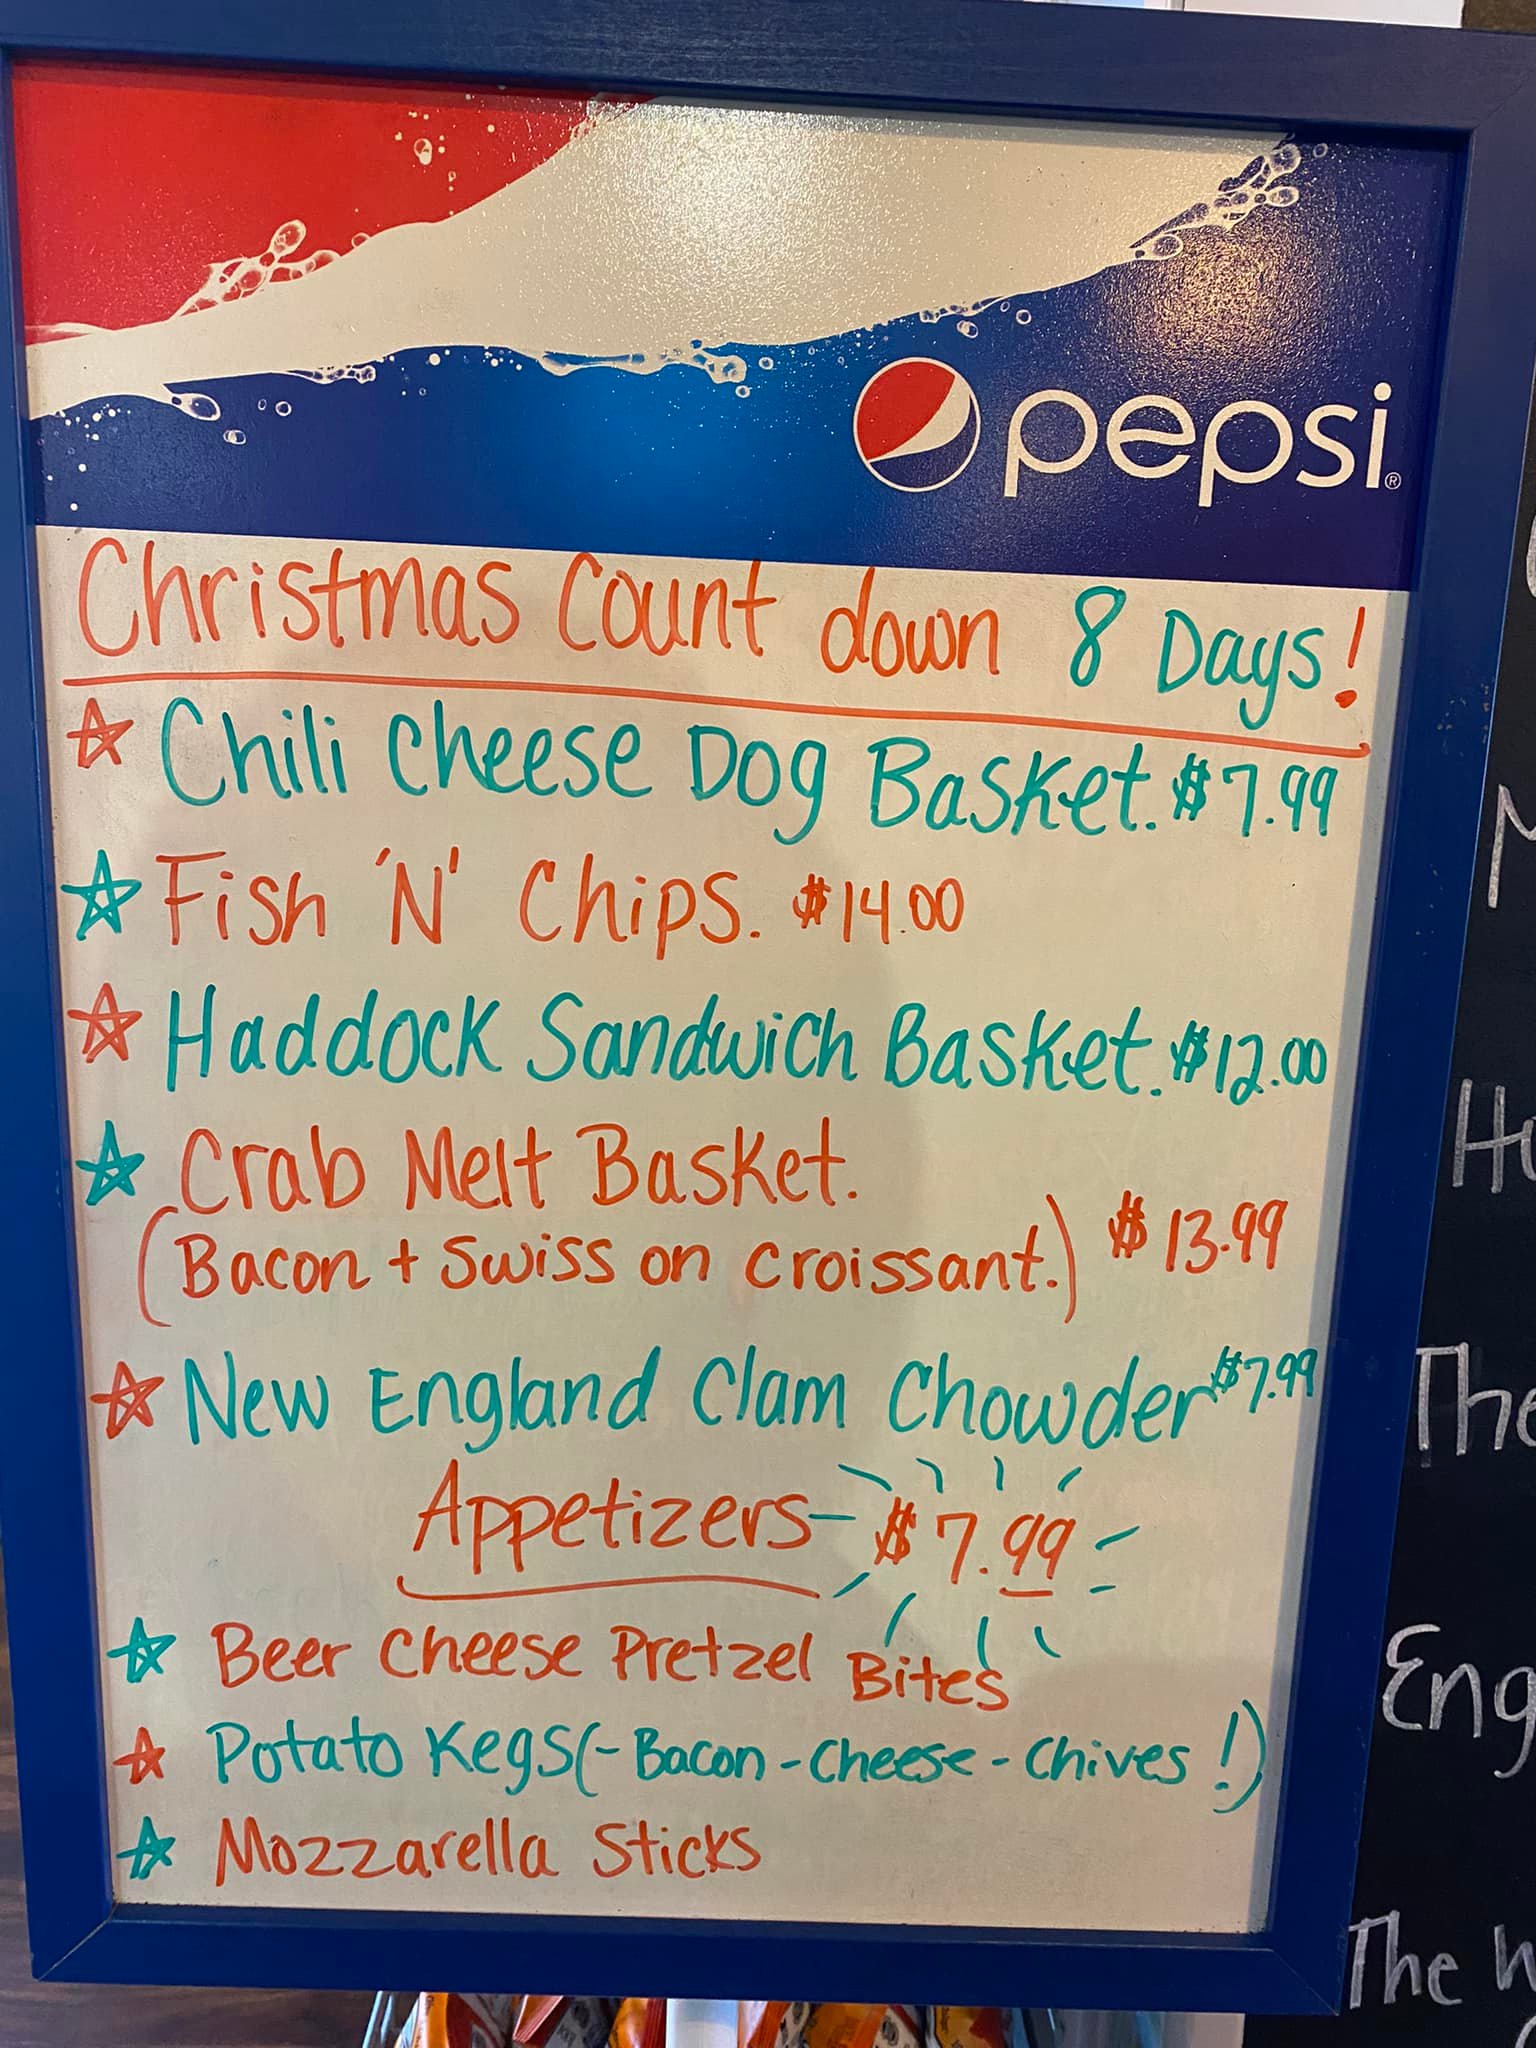 pepsi®
Christmas Count down 8 Days!
Chili Cheese Dog Basket. $7.99
Fish 'N' Chips. $14.00
Haddock Sandwich Basket. $12.00
Crab Melt Basket.
(Bacon + Swiss on Croissant.) $13.99
New England Clam Chowder $7.99
Appetizers- $7.99
Beer Cheese Pretzel Bites
Potato Kegs(-Bacon-Cheese-Chives!)
Mozzarella Sticks
The
Eng
The